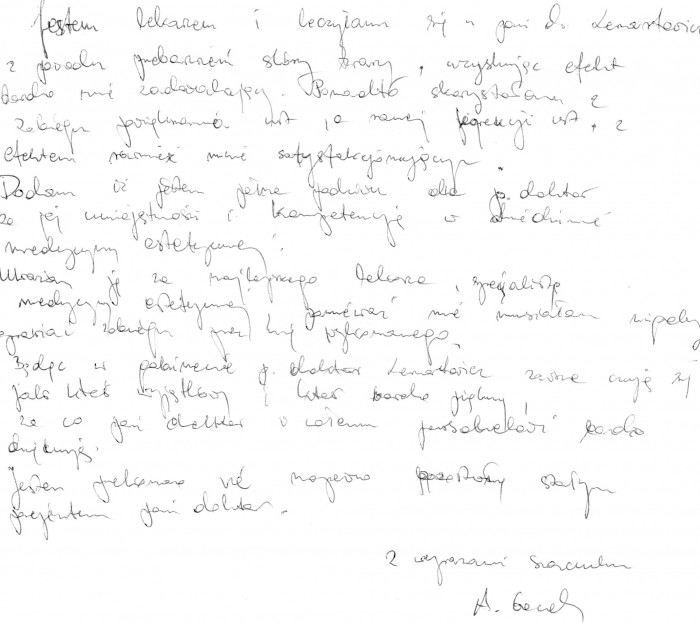 Jestem lekarzem i leczyłam się u pani dr. Lenartowicz
z powodu przebarwień skóry twarzy, uzyskując efekt
bardzo mnie zadowalający. Ponadto skorzystałam z
zabiegu powiększania ust, a raczej korekcji ust, z
efektem również mnie satysfakcjonującym.
Dodam iż jestem pełna podziwu dla p. doktor
za jej umiejętności i kompetencję w dziedzinie
medycyny estetycznej.
Uważam ją za najlepszego lekarza, specjalistę
medycyny estetycznej, ponieważ nie musiałam nigdy
poprawiać zabiegu przez nią wykonanego.
Będąc w gabinecie p. doktor Lenartowicz zawsze czuję się
jak ktoś wyjątkowy i ktoś bardzo piękny,
za co pani doktor i całemu personelowi bardzo
dziękuję.
Jestem przekonana że na pewno pozostanę stałym
pacjentem pani doktor.
Z wyrazami szacunku
A.